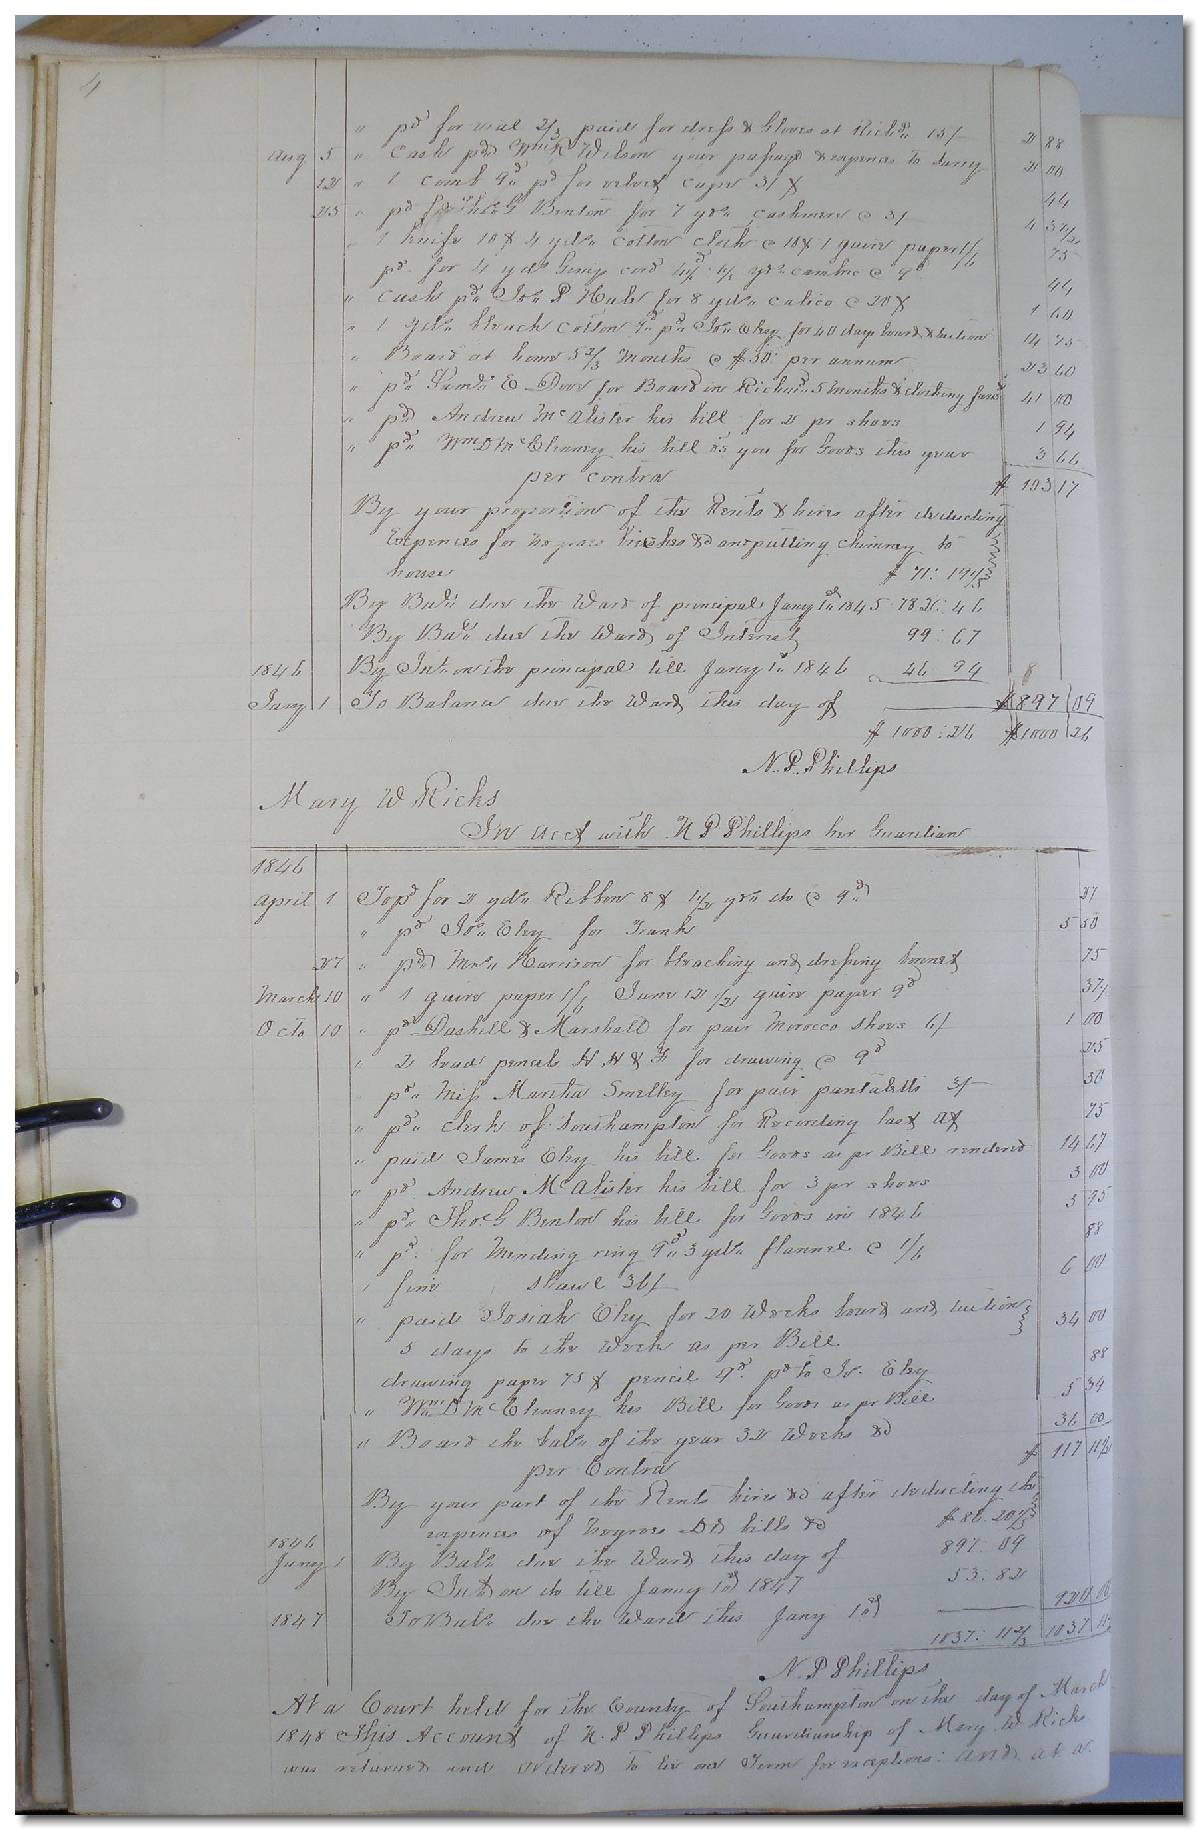 4
" pd for veal 2/3 paid for dress & Gloves at Richd. 15/- 2 88
Aug 5 " Cash pd Wm R Wilson your passage & expences to Surry 2 00
12 " 1 comb 9d pd for velvet cape 3/ 44
25 " pd Thos. G Benton for 7 yds cashmere @ 3/- 4 37 1/2
" 1 knife 18 & 4 yds cotton cloth @ 10 & 1 quire paper 1/6 75
pd. for 4 yds Gimp cord yds cambric @ 9d 44
" Cash pd. Jos. P Hale for 8 yds calico @ 20 1 60
" 1 yd. bleach cotton 9d pd. Jos. Eley for 40 days board & tuition 14 75
" Board at home 5 2/3 Months @ $50. per annum 23 60
" pd. E Dove for Board in Richd. 5 months & 41 00
" pd Andrew McAlister his bill for 2 pr shoes 1 94
" pd. Wm D McClenney his bill vs you for Goods this year 3 66
per contra $ 103 17
By your proportion of the Rents & hires after deducting
Expences for Negroes &c and putting chimney to
house $ 71: 19 1/3
By Bal. due the Ward of principal Jany 1st 1845 782: 46
By Bal. due the Ward of Interest 99: 67
1846 By Int. on the principal till Jany 1st 1846 46 94
Jany 1 To Balance due the Ward this day of $ 897 09
$ 1000: 26 $ 1000 26
N. P. Phillips
Mary W Ricks
In acct with N P Phillips her Guardian
1846
April 1 To pd for 2 yds Ribbon 8 & 1 1/2 yds do @ 9d 27
" pd Jos. Eley for Trunk 5 50
27 " pd Mrs. Harrison for bleaching and dressing bonnet 75
March 10 " 1 quire paper 1/6 June 12 1/2 quire paper 9d 37
Octo 10 " pd Dashiell & Marshall for pair Morocco shoes 6/ 1 00
" 2 lead pencils H H & F for drawing @ 9d 25
pd. Miss Martha Smelley for pair pantaletts 3/- 50
" pd. Clerk of Southampton for Recording last a/c 75
" paid James Eley his bill for Goods as pr Bill rendered 14 67
" pd. Andrew McAlister his bill for 3 pr shoes 3 00
" pd. Thos. G Benton his bill for Goods in 1846 3 95
" pd. for Mending ring 9d. 3 yds flannel @ 1/6 88
" fine shawl 36/- 6 00
" paid Josiah Eley for 20 Weeks board and tuition
5 days to the Week as per Bill 34 00
drawing paper 75 & pencil 9d. pd to Jos. Eley 88
" Wm D McClenney his Bill for Goods as pr Bill 5 34
" Board the bal. of the year 32 Weeks &c 36 00
per Contra $ 117 11 2/3
By your part of the Rents hires &c after deducting the
expences of Negroes Dr. bills &c $ 86: 20 2/3
1846
Jany 1 By Bal. due the Ward this day of 897: 09
By Int on do till Janry 1st 1847 53: 82
1847 To Bal. due the Ward this Jany 1st 920 00
1037: 11 2/3 1037 11
N. P Phillips
At a Court held for the County of Southampton on the day of March
1848 This Account of N. P Phillips Guardianship of Mary W Ricks
was returned and ordered to lie one Term for exceptions: and at a